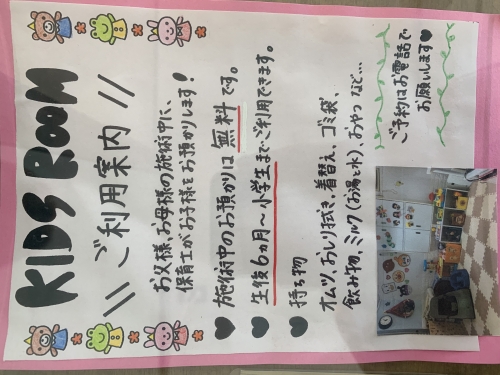 KIDS ROOM
\\ ご利用案内 //
お父様、お母様の施術中に、
保育士がお子様をお預かりします！
♥ 施術中のお預かりは 無料 です。
♥ 生後6ヵ月〜小学生までご利用できます。
♥ 持ち物
オムツ、おしり拭き、着替え、ゴミ袋、
飲み物、ミルク(お湯と水)、おやつ など…
ご予約はお電話で
お願いします♥